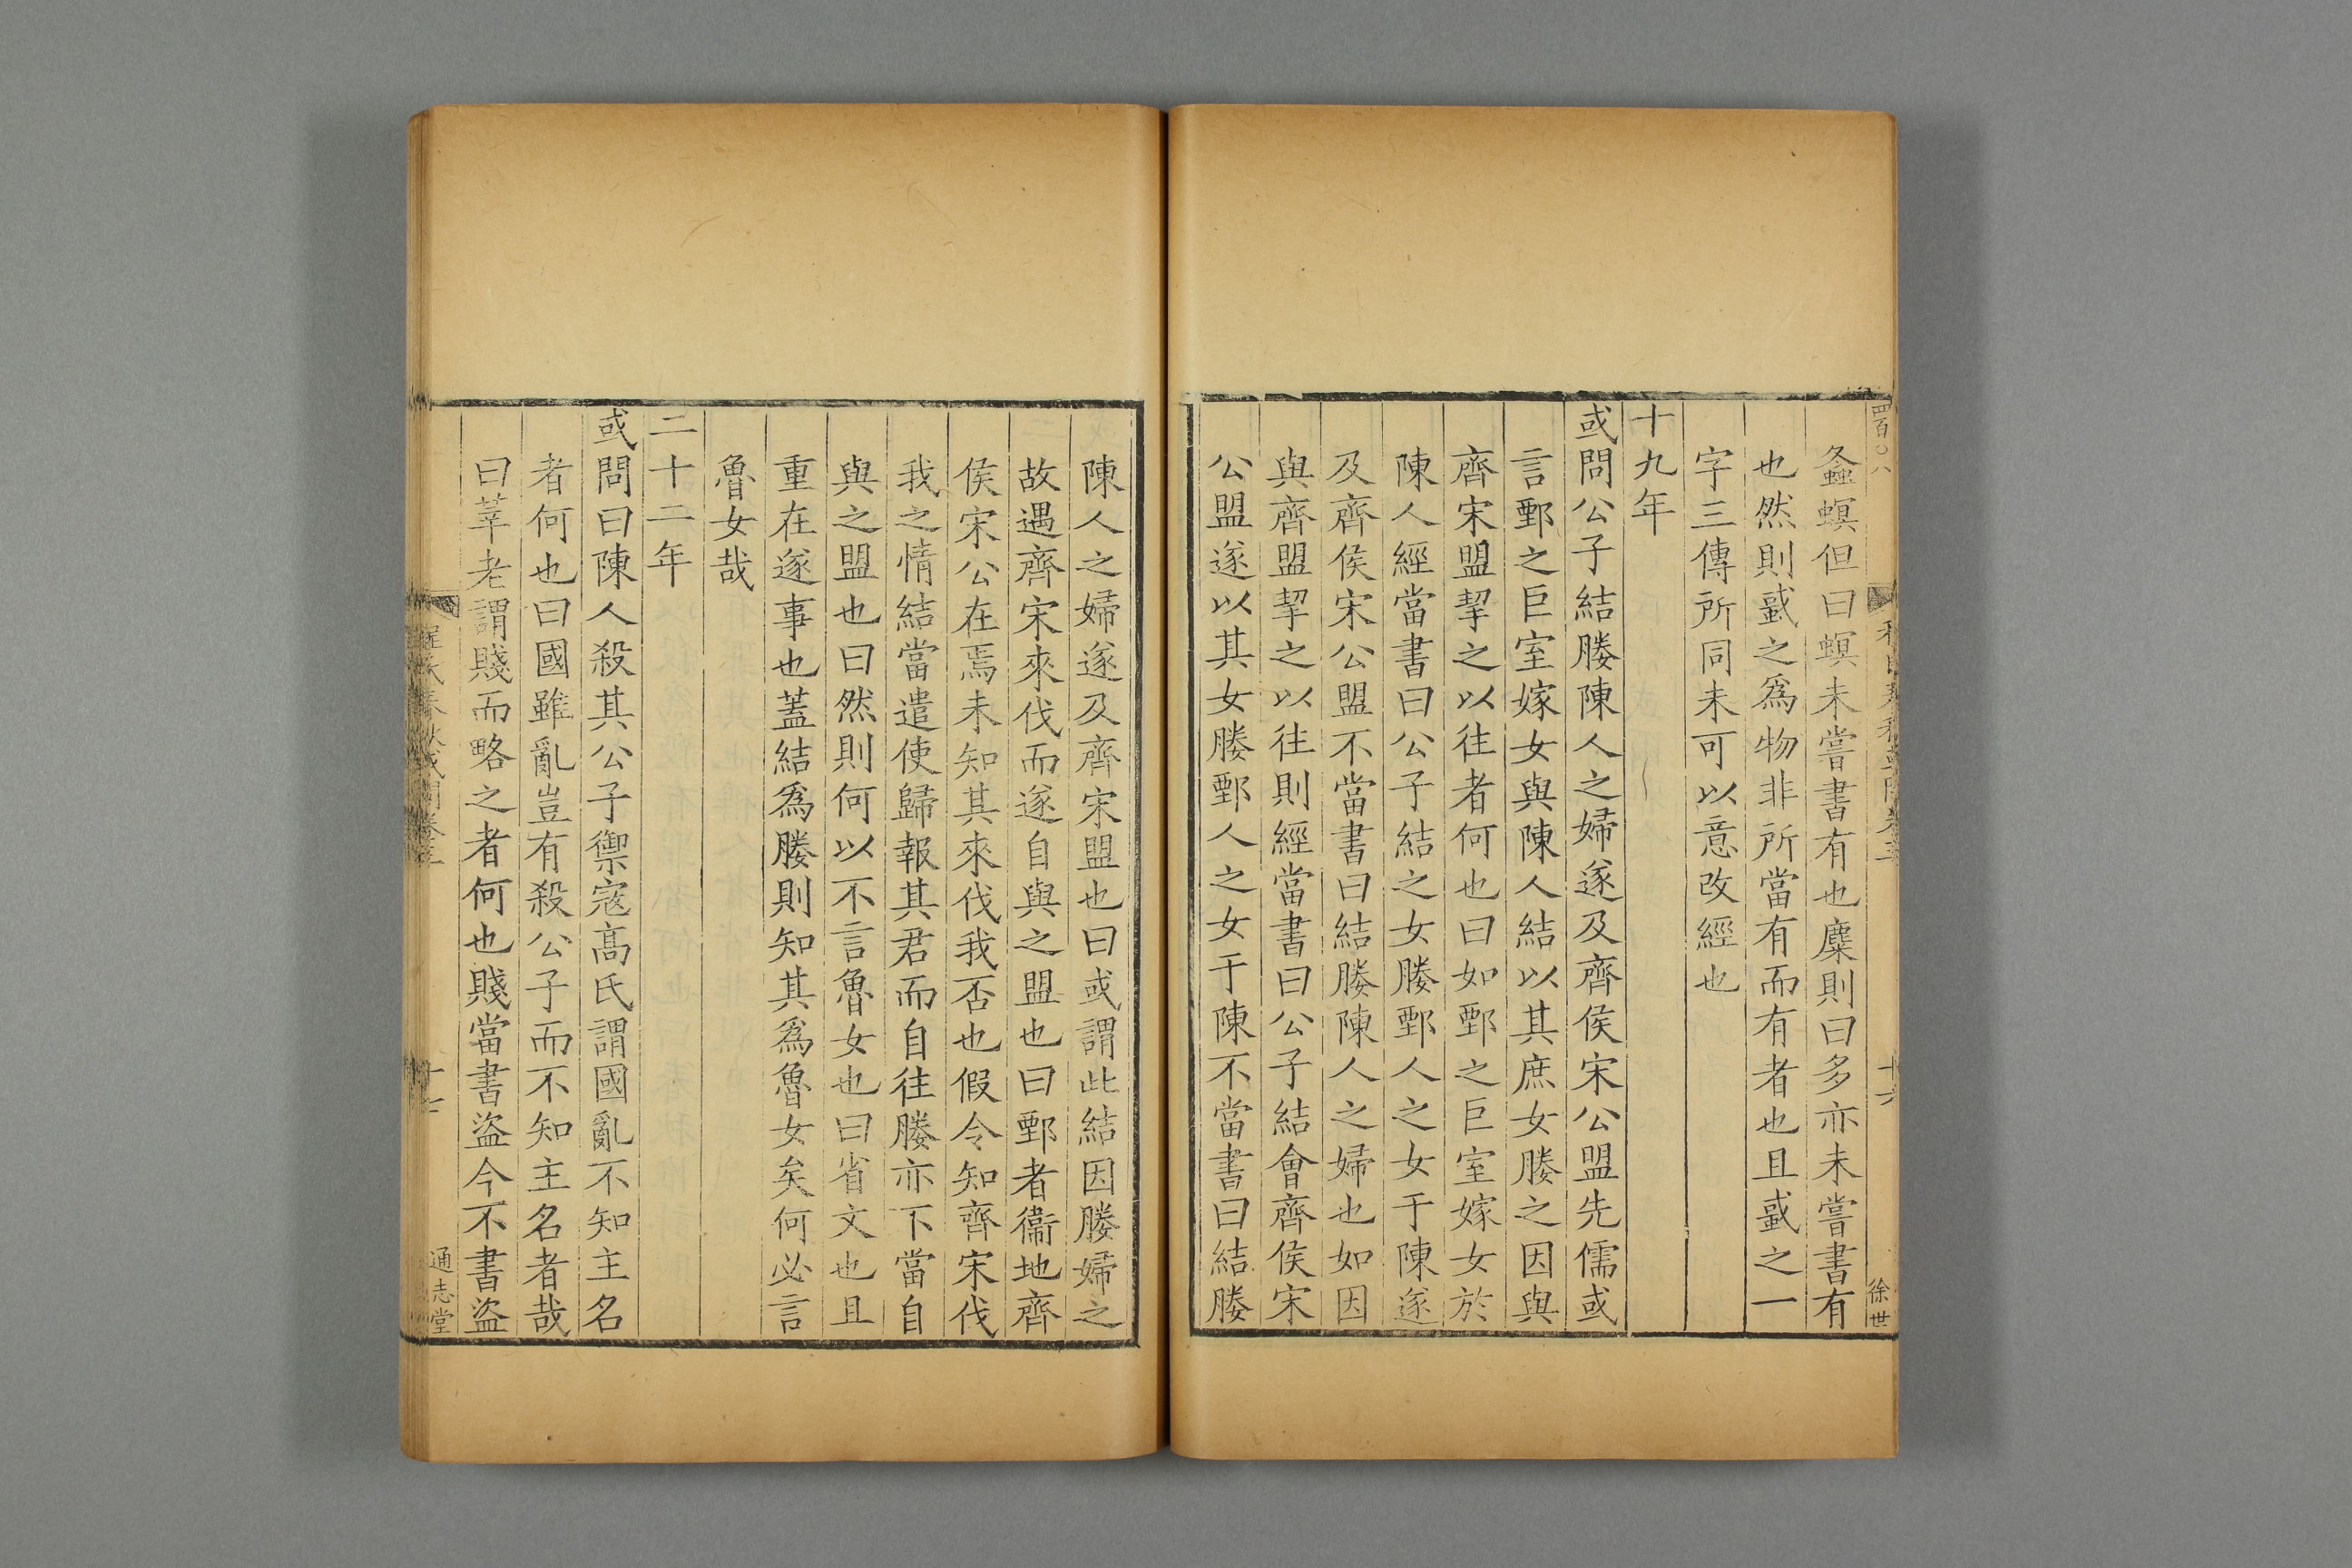 四百〇八
螽螟但曰螟未嘗書有也麋則曰多亦未嘗書有
也然則蜮之爲物非所當有而有者也且蜮之一
字三傳所同未可以意改經也
十九年
或問公子結媵陳人之婦遂及齊侯宋公盟先儒或
言鄄之巨室嫁女與陳人結以其庶女媵之因與
齊宋盟挈之以往者何也曰如鄄之巨室嫁女於
陳人經當書曰公子結之女媵鄄人之女于陳遂
及齊侯宋公盟不當書曰結媵陳人之婦也如因
與齊盟挈之以往則經當書曰公子結會齊侯宋
公盟遂以其女媵鄄人之女于陳不當書曰結媵
十六
徐世
陳人之婦遂及齊宋盟也曰或謂此結因媵婦之
故遇齊宋來伐而遂自與之盟也曰鄄者衞地齊
侯宋公在焉未知其來伐我否也假令知齊宋伐
我之情結當遣使歸報其君而自往媵亦不當自
與之盟也曰然則何以不言魯女也曰省文也且
重在遂事也蓋結爲媵則知其爲魯女矣何必言
魯女哉
二十二年
或問曰陳人殺其公子禦寇高氏謂國亂不知主名
者何也曰國雖亂豈有殺公子而不知主名者哉
曰莘老謂賤而略之者何也賤當書盜今不書盜
通志堂